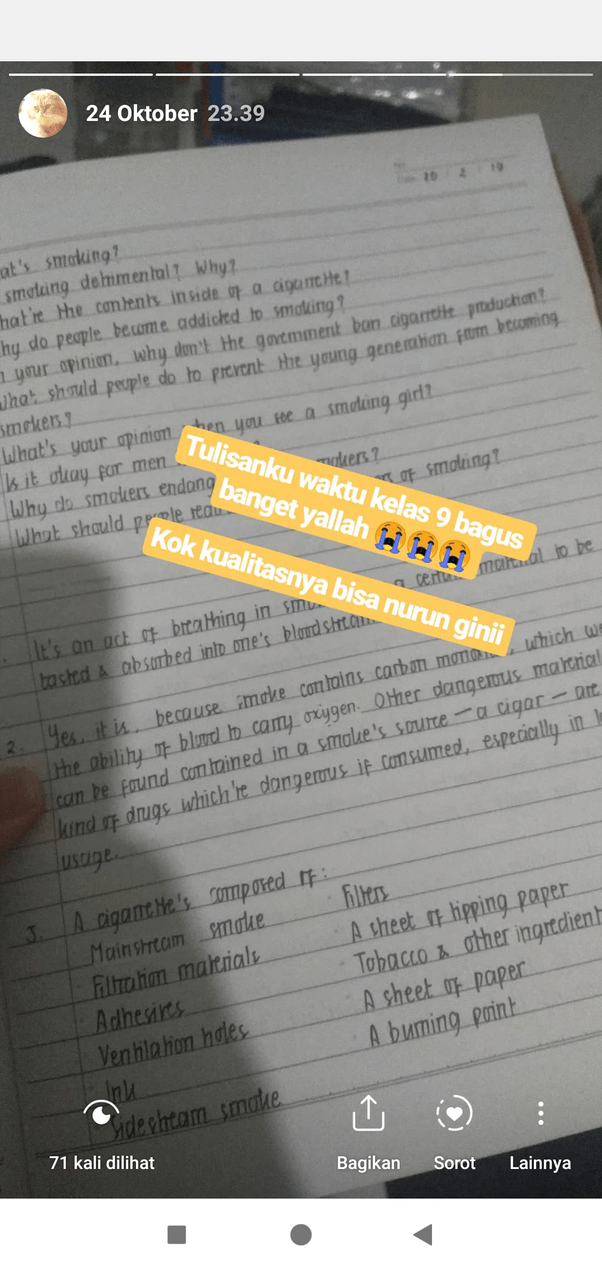 24 Oktober 23.39
20 / 2 / 19
at's smoking?
smoking detrimental? Why?
hat're the contents inside of a cigarette?
hy do people become addicted to smoking?
n your opinion, why don't the government ban cigarette production?
What should people do to prevent the young generation from becoming
smokers?
What's your opinion when you see a smoking girl?
Is it okay for men smokers?
Why do smokers endang of smoking?
What should people redu
Tulisanku waktu kelas 9 bagus
banget yallah 😭😭😭
Kok kualitasnya bisa nurun ginii
It's an act of breathing in smo a certain material to be
tasted & absorbed into one's bloodstream
2. Yes, it is, because smoke contains carbon monoxide, which w
the ability of blood to carry oxygen. Other dangerous material
can be found contained in a smoke's source — a cigar — are
kind of drugs which're dangerous if consumed, especially in l
usage.
3. A cigarette's composed of:
Mainstream smoke
Filtration materials
Adhesives
Ventilation holes
Ink
Sidestream smoke
Filters
A sheet of tipping paper
Tobacco & other ingredient
A sheet of paper
A burning point
71 kali dilihat
Bagikan
Sorot
Lainnya